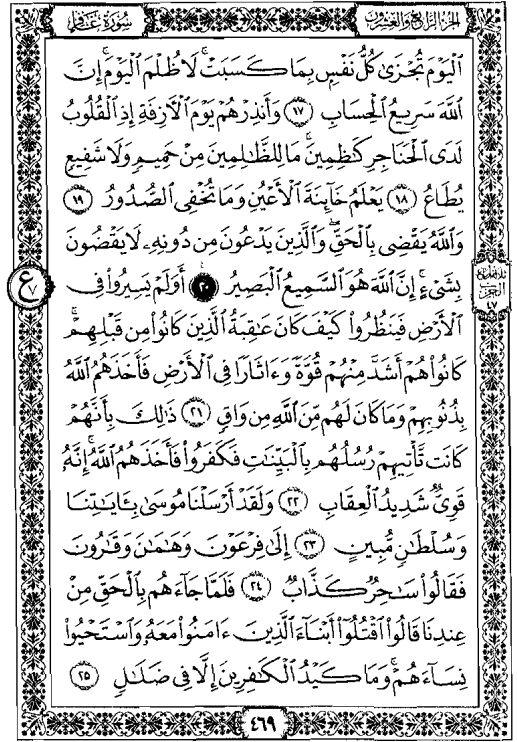 الجزء الرابع والعشرون
سورة غافر
ٱلْيَوْمَ تُجْزَىٰ كُلُّ نَفْسٍۭ بِمَا كَسَبَتْ ۚ لَا ظُلْمَ ٱلْيَوْمَ ۚ إِنَّ
ٱللَّهَ سَرِيعُ ٱلْحِسَابِ ١٧ وَأَنذِرْهُمْ يَوْمَ ٱلْـَٔازِفَةِ إِذِ ٱلْقُلُوبُ
لَدَى ٱلْحَنَاجِرِ كَـٰظِمِينَ ۚ مَا لِلظَّـٰلِمِينَ مِنْ حَمِيمٍ وَلَا شَفِيعٍ
يُطَاعُ ١٨ يَعْلَمُ خَآئِنَةَ ٱلْأَعْيُنِ وَمَا تُخْفِى ٱلصُّدُورُ ١٩
وَٱللَّهُ يَقْضِى بِٱلْحَقِّ ۖ وَٱلَّذِينَ يَدْعُونَ مِن دُونِهِۦ لَا يَقْضُونَ
بِشَىْءٍ ۗ إِنَّ ٱللَّهَ هُوَ ٱلسَّمِيعُ ٱلْبَصِيرُ ٢٠ أَوَلَمْ يَسِيرُوا۟ فِى
ٱلْأَرْضِ فَيَنظُرُوا۟ كَيْفَ كَانَ عَـٰقِبَةُ ٱلَّذِينَ كَانُوا۟ مِن قَبْلِهِمْ ۚ
كَانُوا۟ هُمْ أَشَدَّ مِنْهُمْ قُوَّةً وَءَاثَارًا فِى ٱلْأَرْضِ فَأَخَذَهُمُ ٱللَّهُ
بِذُنُوبِهِمْ وَمَا كَانَ لَهُم مِّنَ ٱللَّهِ مِن وَاقٍ ٢١ ذَٰلِكَ بِأَنَّهُمْ
كَانَت تَّأْتِيهِمْ رُسُلُهُم بِٱلْبَيِّنَـٰتِ فَكَفَرُوا۟ فَأَخَذَهُمُ ٱللَّهُ ۚ إِنَّهُۥ
قَوِىٌّ شَدِيدُ ٱلْعِقَابِ ٢٢ وَلَقَدْ أَرْسَلْنَا مُوسَىٰ بِـَٔايَـٰتِنَا
وَسُلْطَـٰنٍ مُّبِينٍ ٢٣ إِلَىٰ فِرْعَوْنَ وَهَـٰمَـٰنَ وَقَـٰرُونَ
فَقَالُوا۟ سَـٰحِرٌ كَذَّابٌ ٢٤ فَلَمَّا جَآءَهُم بِٱلْحَقِّ مِنْ
عِندِنَا قَالُوا۟ ٱقْتُلُوٓا۟ أَبْنَآءَ ٱلَّذِينَ ءَامَنُوا۟ مَعَهُۥ وَٱسْتَحْيُوا۟
نِسَآءَهُمْ ۚ وَمَا كَيْدُ ٱلْكَـٰفِرِينَ إِلَّا فِى ضَلَـٰلٍ ٢٥
ع
٧
الحزب
٤٧
٤٦٩